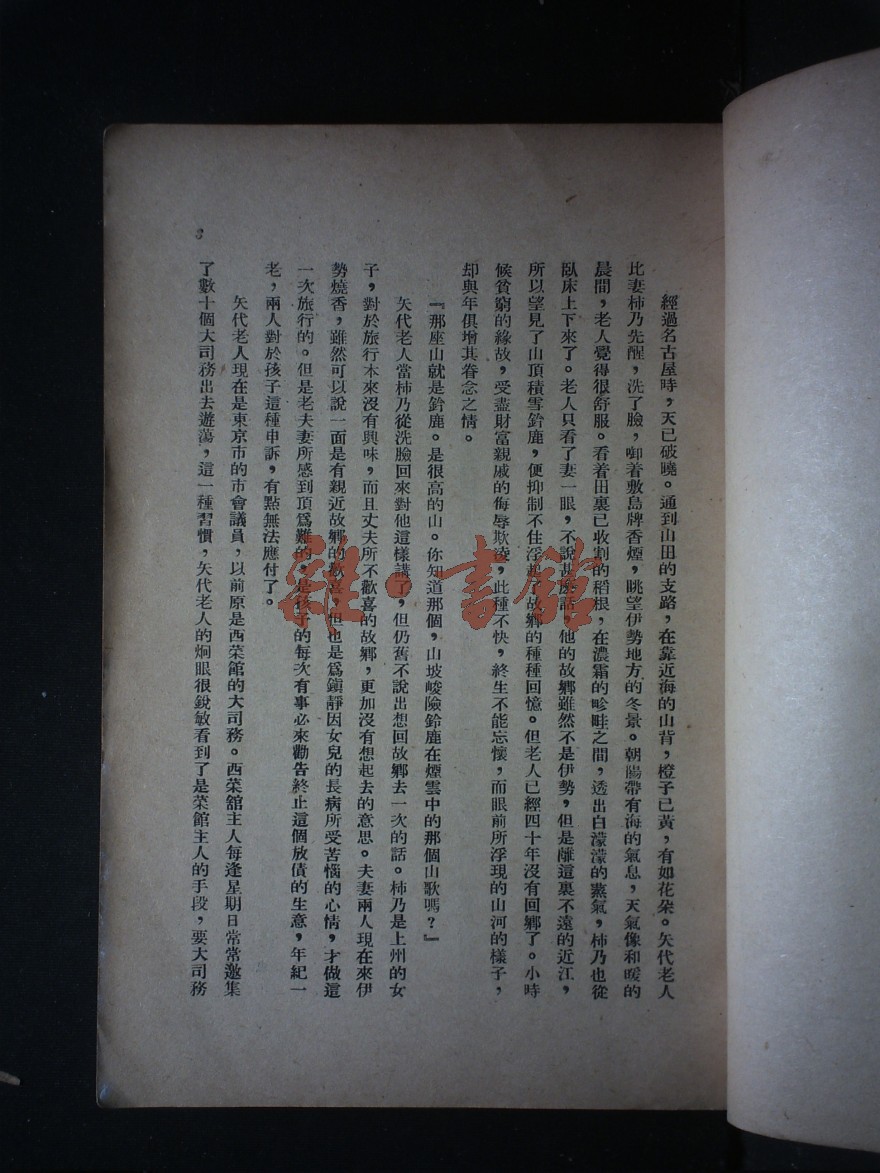 經過名古屋時，天已破曉。通到山田的支路，在靠近海的山背，橙子已黃，有如花朶。矢代老人
比妻柿乃先醒，洗了臉，啣着敷島牌香煙，眺望伊勢地方的冬景。朝陽帶有海的氣息，天氣像和暖的
晨間，老人覺得很舒服。看着田裏已收割的稻根，在濃霜的畛畦之間，透出白濛濛的蒸氣，柿乃也從
臥床上下來了。老人只看了妻一眼，不說甚麽話，他的故鄉雖然不是伊勢，但是離這裏不遠的近江，
所以望見了山頂積雪鈴鹿，便抑制不住浮起了故鄉的種種回憶。但老人已經四十年沒有回鄉了。小時
候貧窮的緣故，受盡財富親戚的侮辱欺凌，此種不快，終生不能忘懷，而眼前所浮現的山河的樣子，
却與年俱增其眷念之情。
『那座山就是鈴鹿。是很高的山。你知道那個，山坡峻險鈴鹿在煙雲中的那個山歌嗎？』
矢代老人當柿乃從洗臉回來對他這樣講了，但仍舊不說出想回故鄉去一次的話。柿乃是上州的女
子，對於旅行本來沒有興味，而且丈夫所不歡喜的故鄉，更加沒有想起去的意思。夫妻兩人現在來伊
勢燒香，雖然可以說一面是有親近故鄉的歡喜，但也是爲鎭靜因女兒的長病所受苦惱的心情，才做這
一次旅行的。但是老夫妻所感到頂爲難的，是孩子的每次有事必來勸告終止這個放債的生意，年紀一
老，兩人對於孩子這種申訴，有點無法應付了。
矢代老人現在是東京市的市會議員，以前原是西菜館的大司務。西菜館主人每逢星期日常常邀集
了數十個大司務出去遊蕩，這一種習慣，矢代老人的炯眼很銳敏看到了是菜館主人的手段，要大司務
3
雜·書館